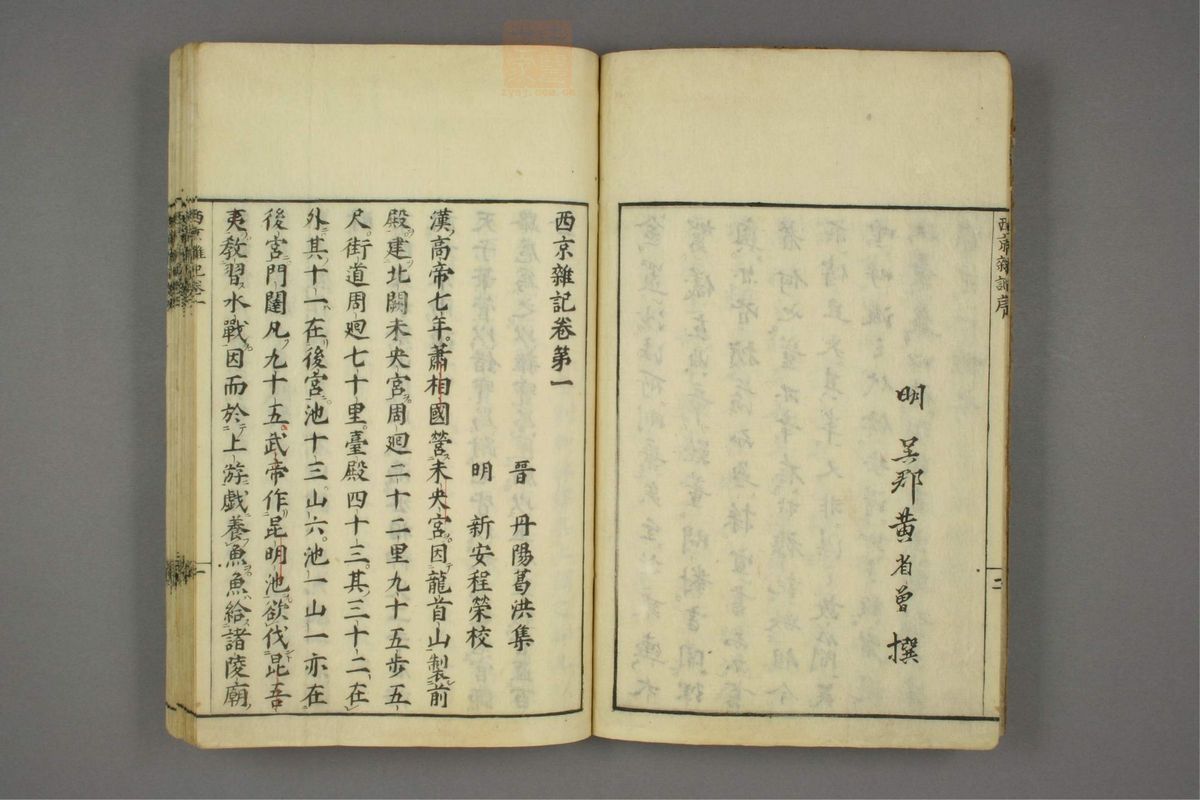 西京雜記序
二
明 吳郡黄省曾撰
西京雜記卷第一
晋 丹陽葛洪集
明 新安程榮校
漢高帝七年蕭相國營未央宮因龍首山製前
殿建北闕未央宮周廻二十二里九十五步五
尺街道周廻七十里臺殿四十三其三十二在
外其十一在後宮池十三山六池一山一亦在
後宮門闥凡九十五武帝作昆明池欲伐昆吾
夷教習水戰因而於上游戲養魚魚給諸陵廟
西京雜記卷一
一